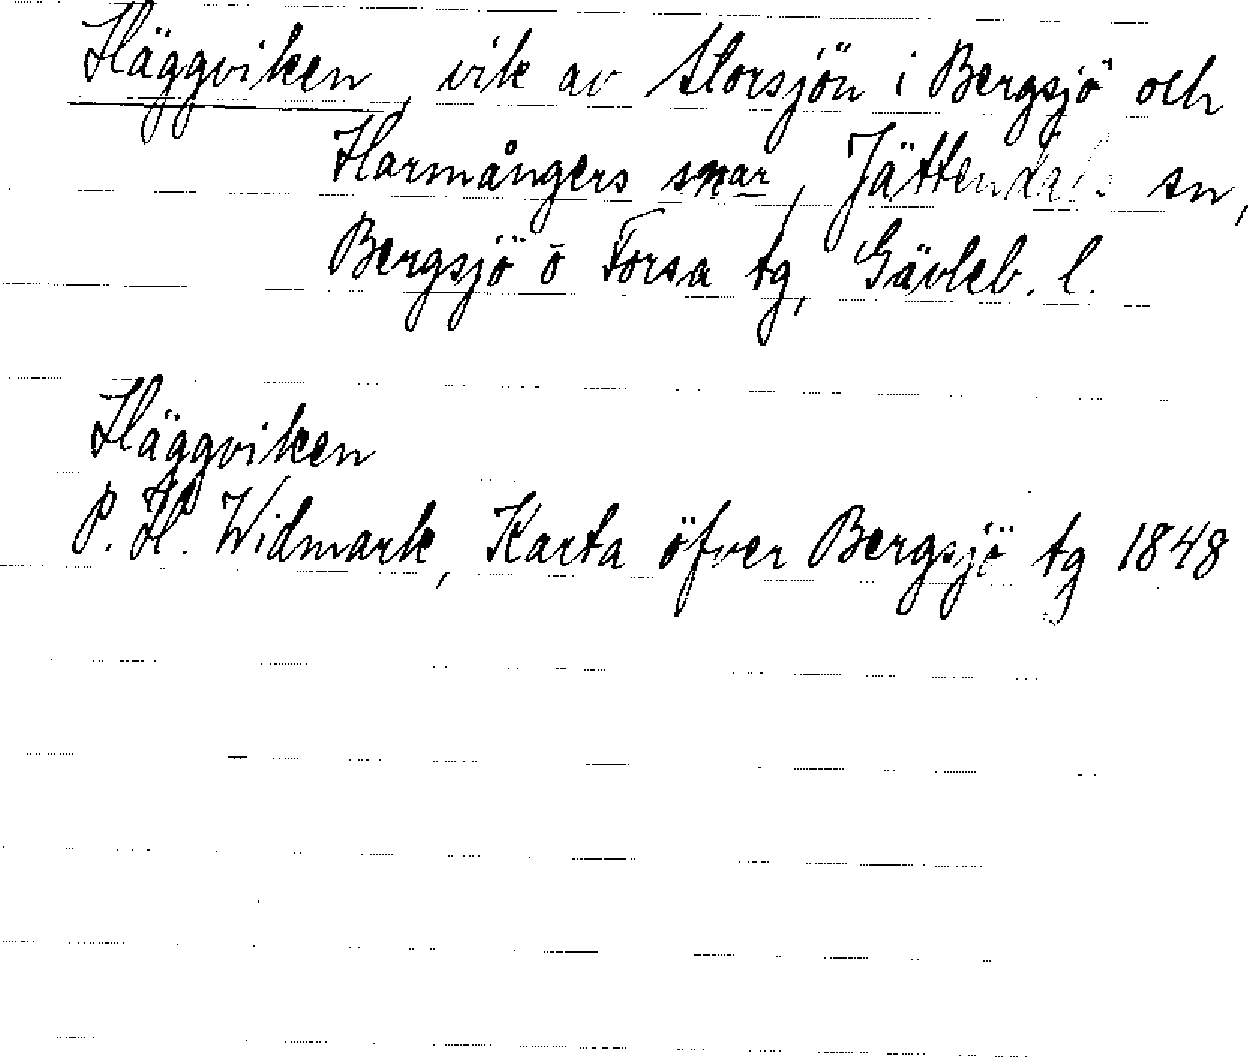 Häggviken, vik av Storsjön i Bergsjö och
Harmångers snar, Jättendals sn,
Bergsjö o Forsa tg, Gävleb. l.
Häggviken
P. H. Widmark, Karta öfver Bergsjö tg 1848